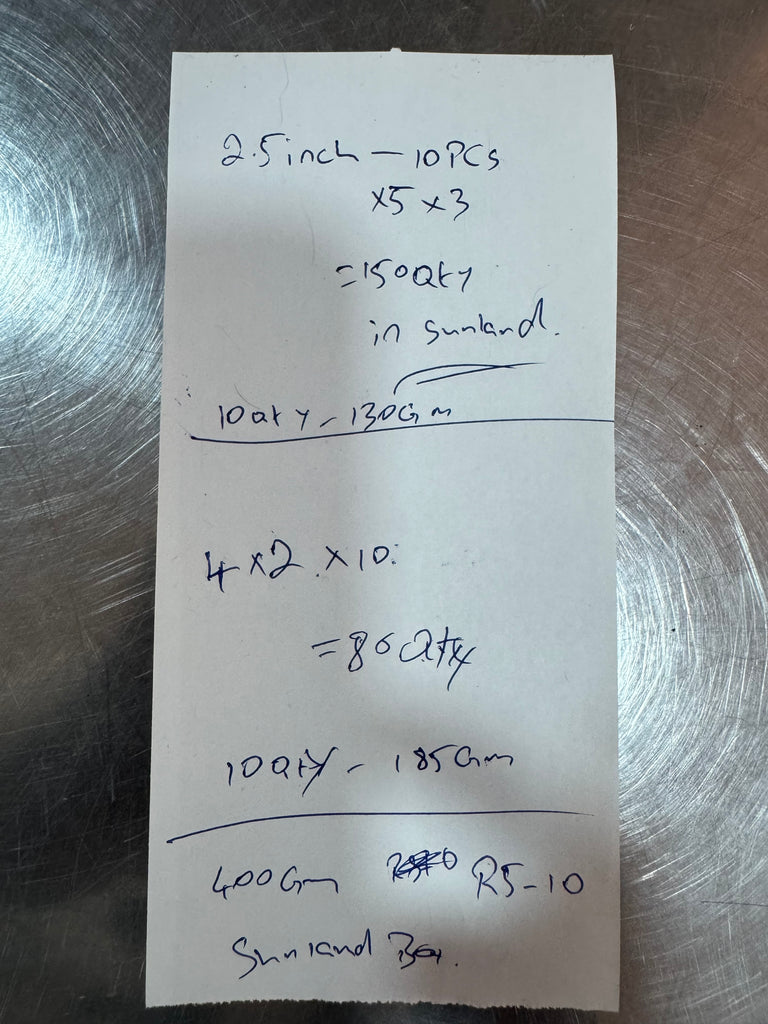 2.5 inch - 10 PCs
x5 x3
= 150 Qty
in Sunland.
10 Qty - 130 Gm
4 x 2 x 10
= 80 Qty
10 Qty - 185 Gm
400 Gm R5-10
Sunland